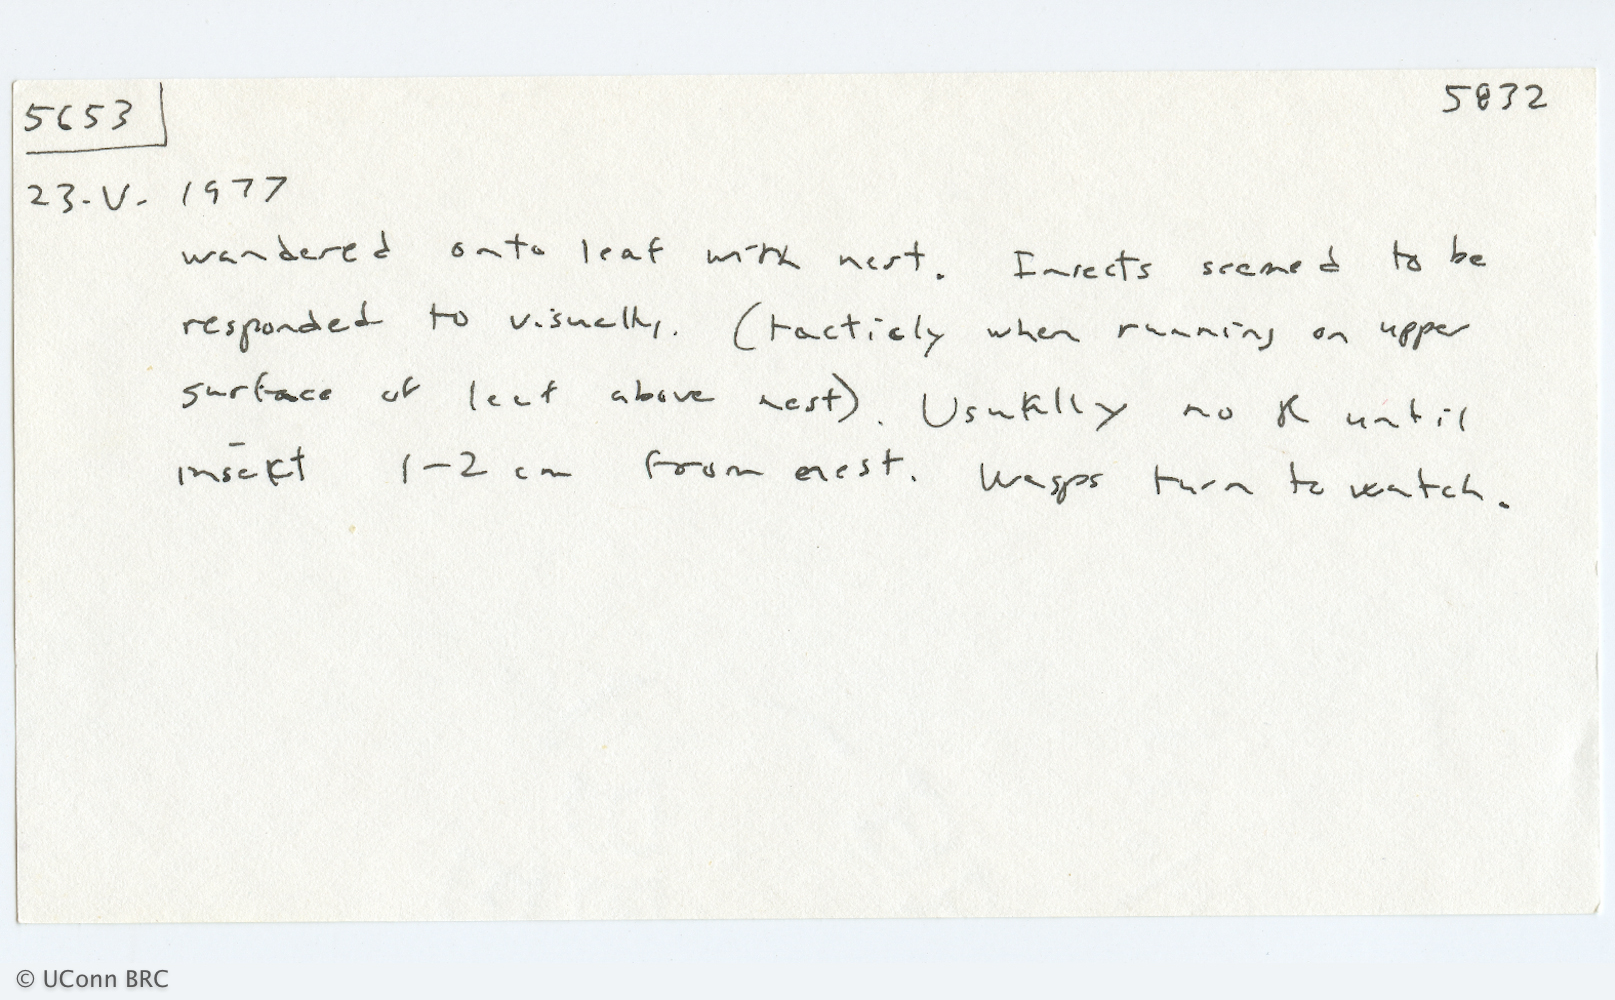 5653 5832
23-V-1977
wandered onto leaf with nest. Insects seemed to be
responded to visually. (tacticly when running on upper
surface of leaf above nest). Usually no R until
insekt 1-2 cm from nest. Wasps turn to watch.
© UConn BRC